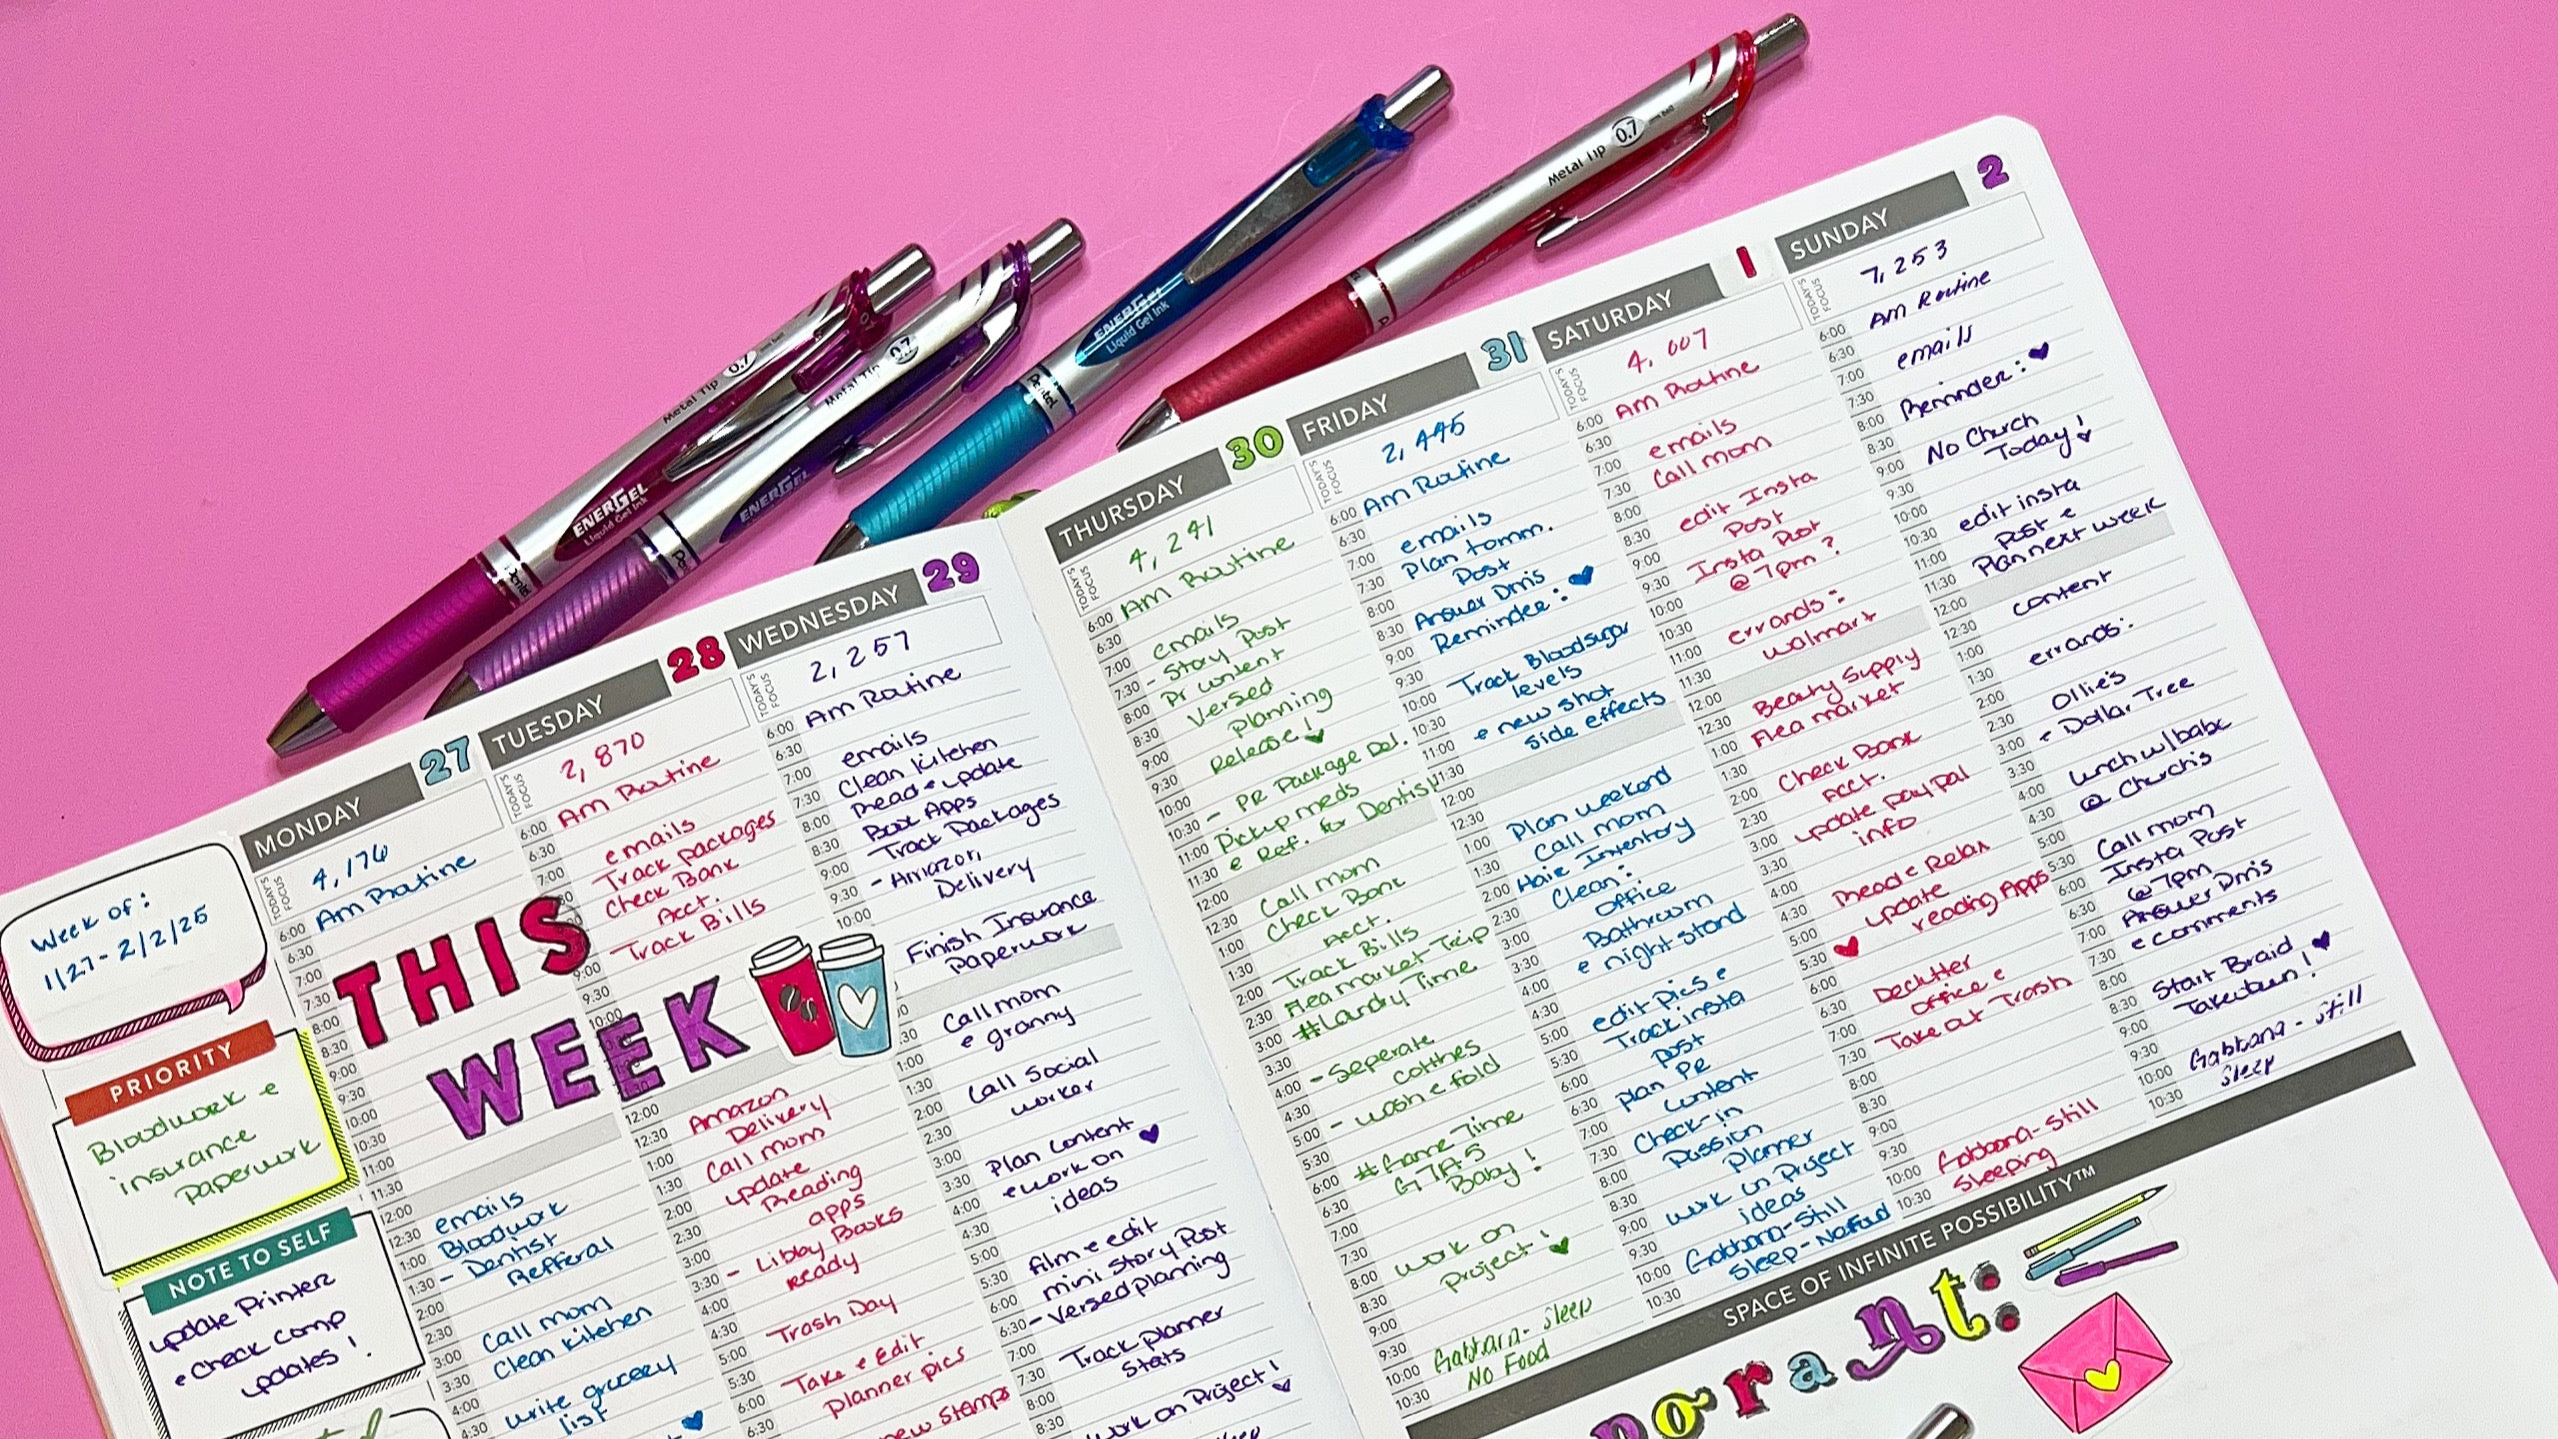 Metal Tip 0.7
ENERGEL
Liquid Gel Ink
Pentel
Metal Tip 0.7
ENERGEL
ENERGEL
Liquid Gel Ink
Pentel
Metal Tip 0.7
Week of:
1/27-2/2/25
PRIORITY
Bloodwork e
insurance
Paperwork
NOTE TO SELF
update Printer
e Check Comp
updates!
THIS
WEEK
MONDAY 27
TODAY'S FOCUS
4,176
Am Routine
emails
Bloodwork
- Dentist
Refferal
Call mom
Clean Kitchen
write grocery
list
TUESDAY 28
TODAY'S FOCUS
2,870
Am Routine
emails
Track packages
Check Bank
Acct.
- Track Bills
Amazon
Delivery
Call mom
update
Reading
apps
- Libby Books
ready
Trash Day
Take e Edit
Planner pics
new Stamps
WEDNESDAY 29
TODAY'S FOCUS
2,257
Am Routine
emails
Clean Kitchen
Read e update
Book Apps
Track Packages
- Amazon
Delivery
Finish Insurance
Paperwork
Call mom
e granny
Call Social
worker
Plan Content
e work on
ideas
film e edit
mini Story Post
- Versed planning
Track planner
Stats
work on Project!
THURSDAY 30
TODAY'S FOCUS
4,241
Am Routine
emails
- Story Post
Pr content
Versed
Planning
Release!
- PR Package Del.
Pickup meds
e Ref. for Dentist
Call mom
Check Bank
Acct.
Track Bills
Flea market Trip
#Landry Time
- Seperate
cothhes
- wash e fold
#Game Time
GTA5
Baby!
work on
Project!
Gabbana- Sleep
No Food
FRIDAY 31
TODAY'S FOCUS
2,445
Am Routine
emails
Plan tomm.
Post
Answer Dm's
Reminder:
Track Bloodsugar
levels
e new shot
side effects
Plan weekend
Call mom
Hair Inventory
Clean:
Office
Bathroom
e night stand
edit pics e
Track insta
post
plan PR
Content
Check-in
Passion
Planner
work on Project
ideas
Gabbana-Still
Sleep-No Food
SATURDAY 1
TODAY'S FOCUS
4,007
Am Routine
emails
Call mom
edit Insta
Post
Insta Post
@ 7pm?
errands:
walmart
Beauty Supply
Flea market
Check Bank
Acct.
update paypal
info
Read e Relax
update
reading Apps
Declutter
Office e
Take out Trash
Gabbana-Still
Sleeping
SUNDAY 2
TODAY'S FOCUS
7,253
Am Routine
emails
Reminder:
No Church
Today!
edit insta
post e
Plan next week
content
errands:
Ollie's
- Dollar Tree
lunch w/babe
@ Church's
Call mom
Insta Post
@ 7pm
Answer Dm's
e comments
Start Braid
Takedown!
Gabbana- Still
Sleep
SPACE OF INFINITE POSSIBILITY™